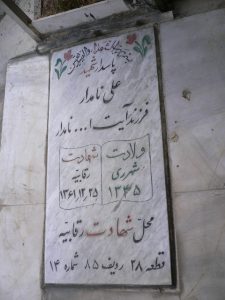 پاسدار شهید
علی نامدار
فرزند آیت ا... نامدار
ولادت
شهرری
۱۳۴۵
شهادت
رقابیه
۱۳۶۱,۱۲,۲۵
محل شهادت رقابیّه
قطعه ۲۸ ردیف ۸۵ شماره ۱۴